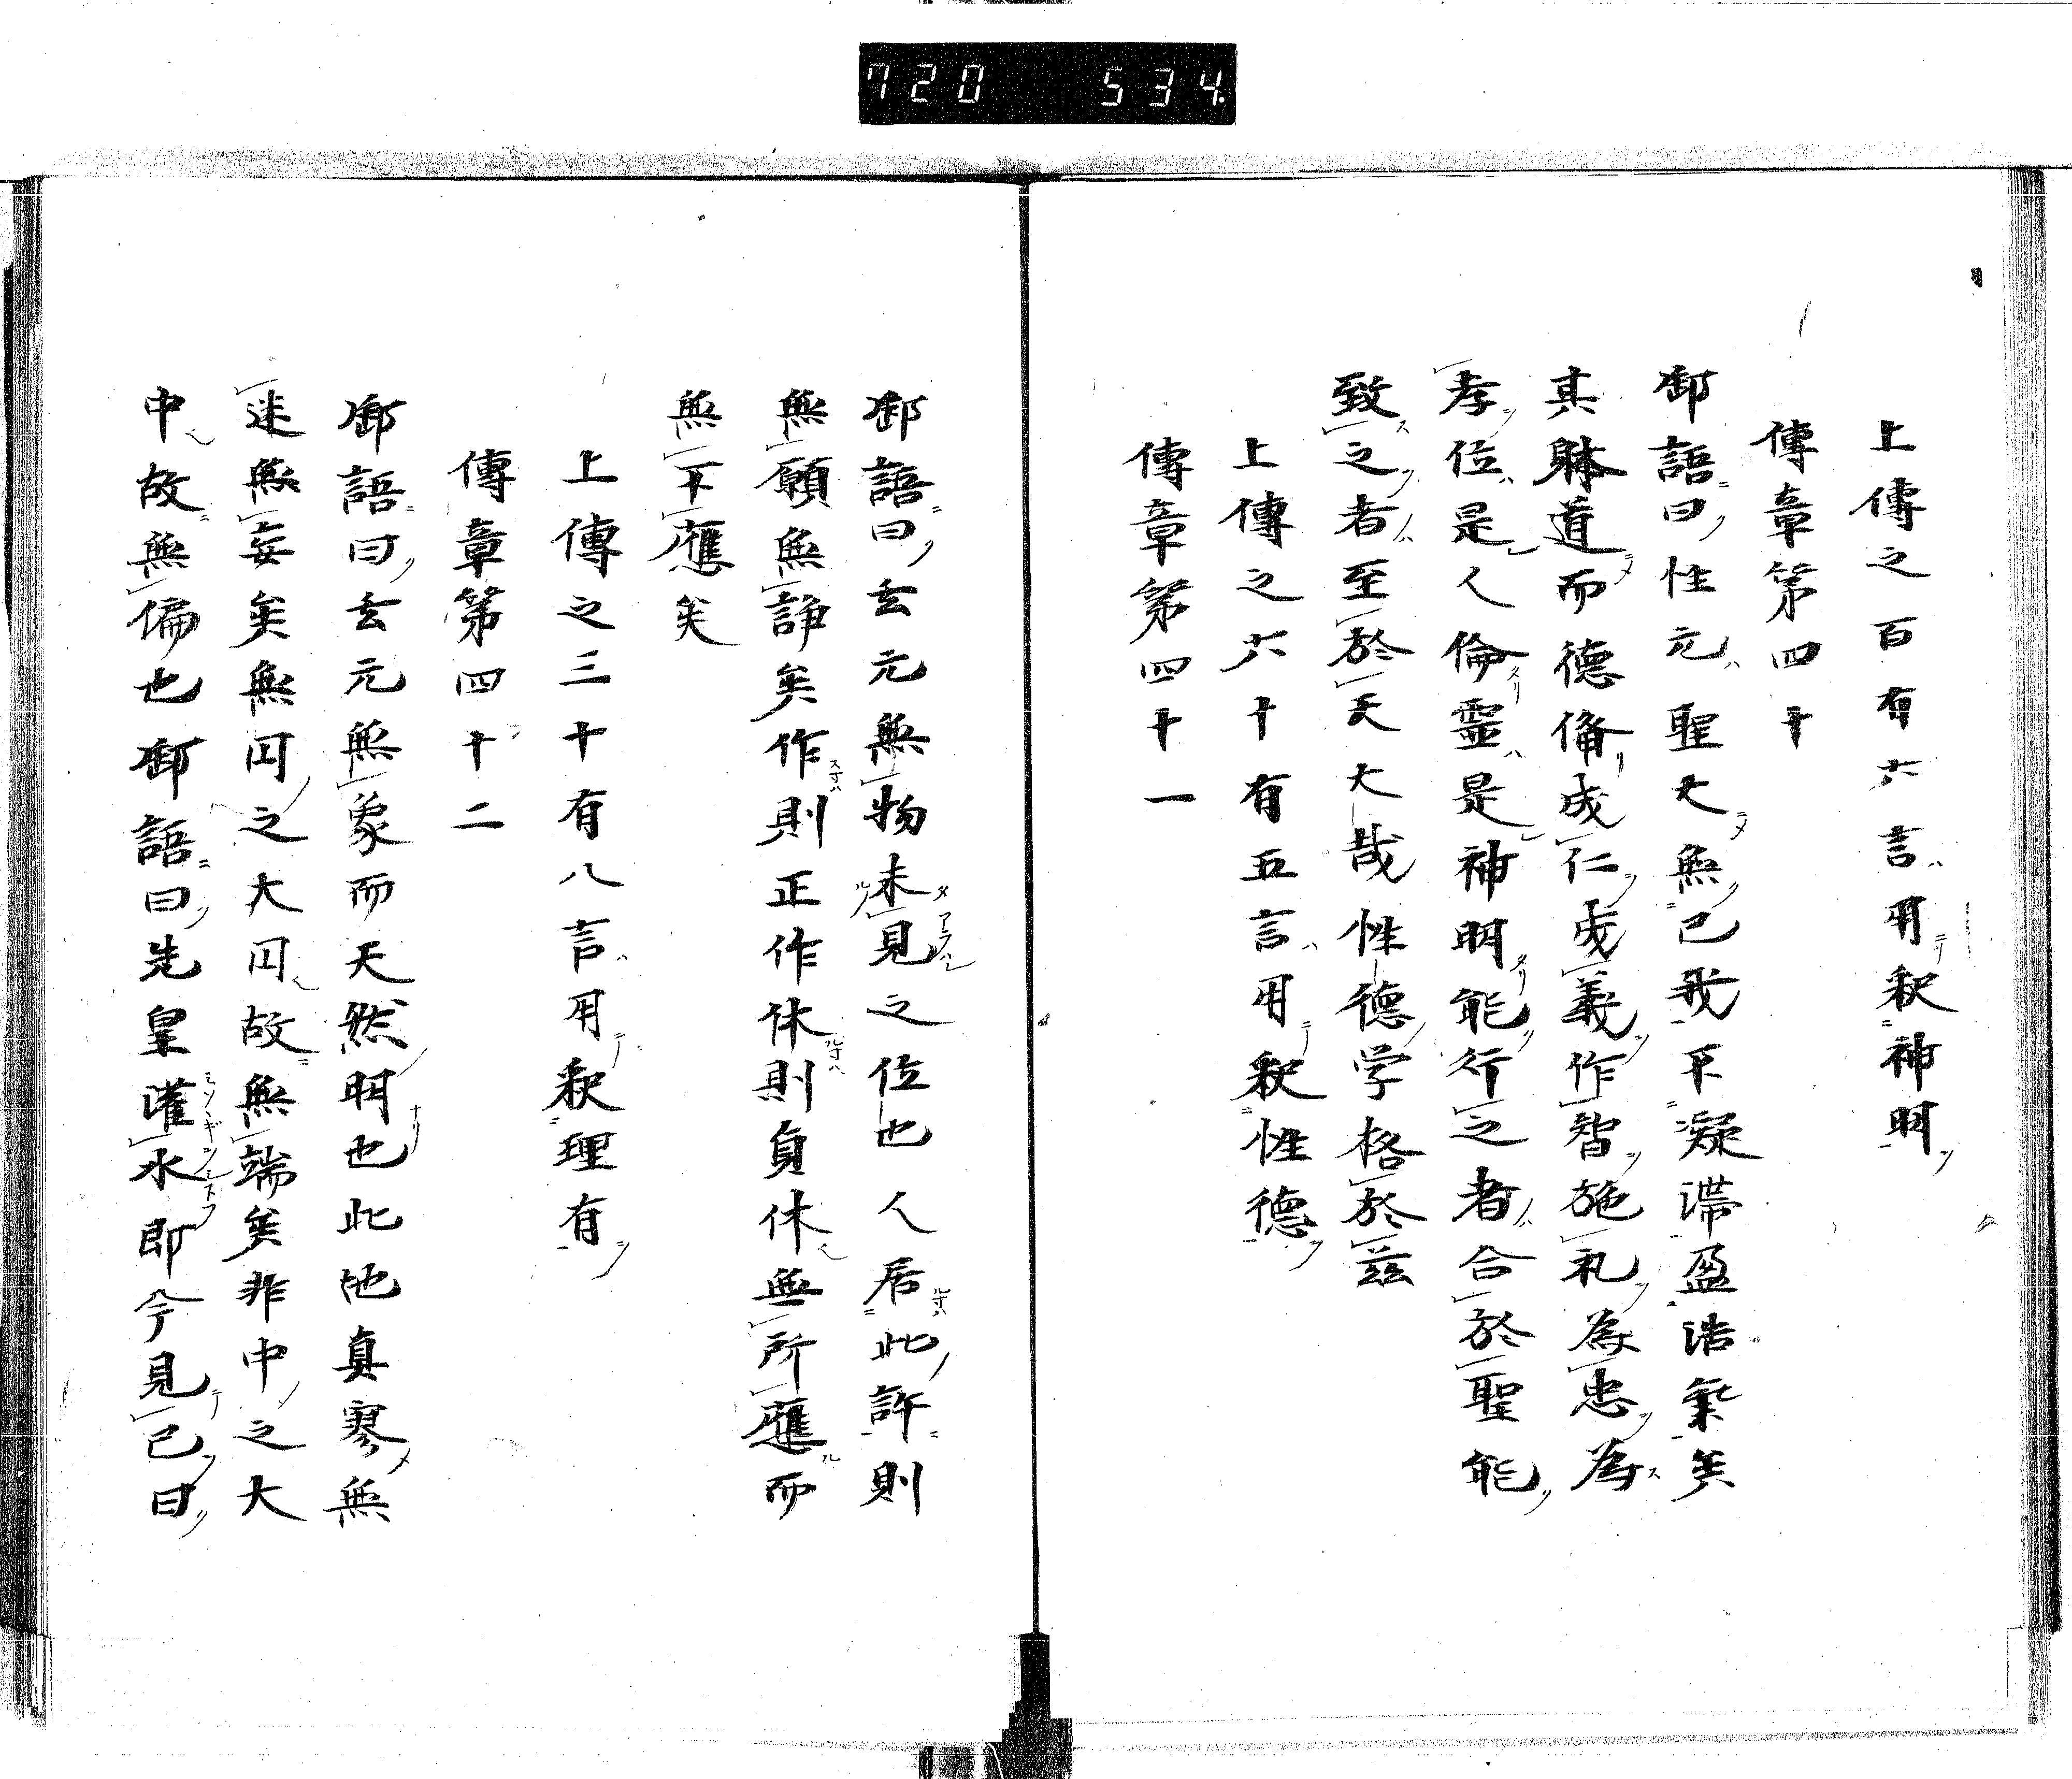 720 534.
上傳之百有六言用釈神明
傳章第四十
御語曰性元聖大無已我不凝滞盈浩氣矣
其躰道而徳備成仁成義作智施礼為忠為
孝位是人倫霊是神明能行之者合於聖能
致之者至於天大哉性徳学格於茲
上傳之六十有五言用釈性徳
傳章第四十一
御語曰玄元無物未見之位也人居此許則
無願無諍矣作則正作休則貞休無所應而
無不應矣
上傳之三十有八言用釈理有
傳章第四十二
御語曰玄元無象而天然明也此地真寥無
迷無妄矣無円之大円故無端矣非中之大
中故無偏也御語曰先皇灌水即今見已曰